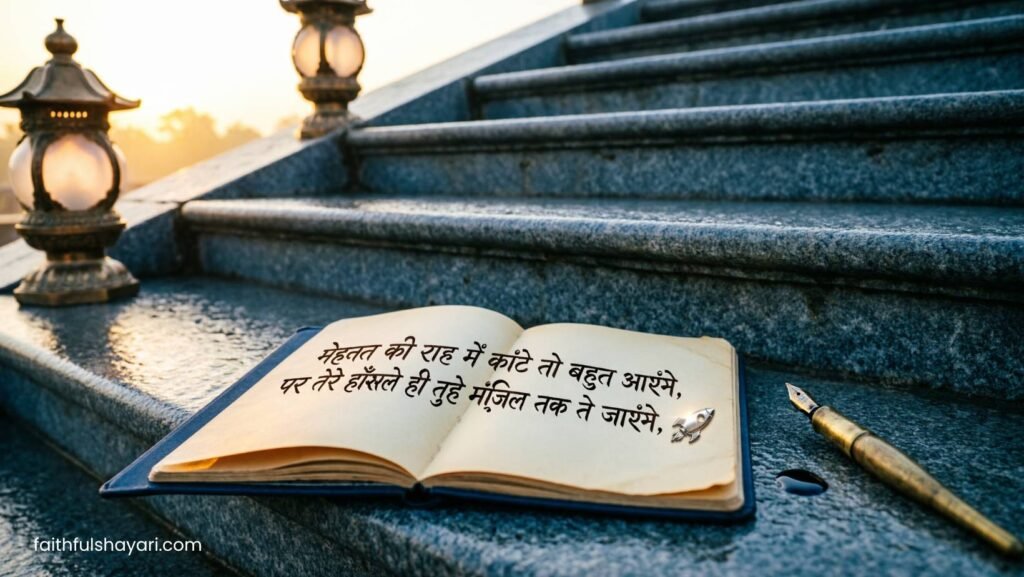 मेहनत की राह में कांटे तो बहुत आरंमे,
पर तेरे हाँसले ही तुहे मंज़िल तक ते जारंमे,
faithfulshayari.com